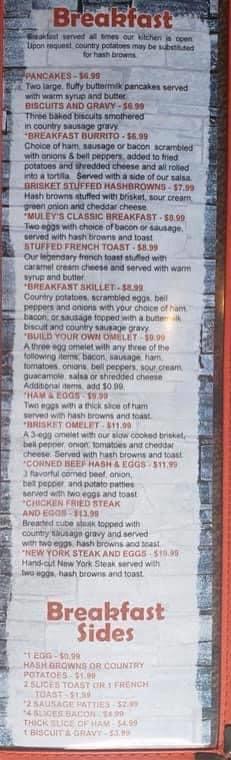 Breakfast
Breakfast served all times our kitchen is open.
Upon request, country potatoes may be substituted
for hash browns.
PANCAKES - $6.99
Two large, fluffy buttermilk pancakes served
with warm syrup and butter.
BISCUITS AND GRAVY - $6.99
Three baked biscuits smothered
in country sausage gravy.
*BREAKFAST BURRITO - $6.99
Choice of ham, sausage or bacon scrambled
with onions & bell peppers, added to fried
potatoes and shredded cheese and all rolled
into a tortilla. Served with a side of our salsa.
BRISKET STUFFED HASHBROWNS - $7.99
Hash browns stuffed with brisket, sour cream,
green onion and cheddar cheese.
*MULEY'S CLASSIC BREAKFAST - $8.99
Two eggs with choice of bacon or sausage,
served with hash browns and toast.
STUFFED FRENCH TOAST - $8.99
Our legendary french toast stuffed with
caramel cream cheese and served with warm
syrup and butter.
*BREAKFAST SKILLET - $8.99
Country potatoes, scrambled eggs, bell
peppers and onions with your choice of ham,
bacon, or sausage topped with a buttermilk
biscuit and country sausage gravy.
*BUILD YOUR OWN OMELET - $9.99
A three egg omelet with any three of the
following items; bacon, sausage, ham,
tomatoes, onions, bell peppers, sour cream,
guacamole, salsa or shredded cheese.
Additional items, add $0.99.
*HAM & EGGS - $9.99
Two eggs with a thick slice of ham
served with hash browns and toast.
*BRISKET OMELET - $11.99
A 3-egg omelet with our slow cooked brisket,
bell pepper, onion, tomatoes and cheddar
cheese. Served with hash browns and toast.
*CORNED BEEF HASH & EGGS - $11.99
3 flavorful corned beef, onion,
bell pepper, and potato patties
served with two eggs and toast.
*CHICKEN FRIED STEAK
AND EGGS - $13.99
Breaded cube steak topped with
country sausage gravy and served
with two eggs, hash browns and toast.
*NEW YORK STEAK AND EGGS - $19.99
Hand-cut New York Steak served with
two eggs, hash browns and toast.
Breakfast
Sides
*1 EGG - $0.99
HASH BROWNS OR COUNTRY
POTATOES - $1.99
2 SLICES TOAST OR 1 FRENCH
TOAST - $1.99
*2 SAUSAGE PATTIES - $2.99
*4 SLICES BACON - $4.99
THICK SLICE OF HAM - $4.99
1 BISCUIT & GRAVY - $3.99